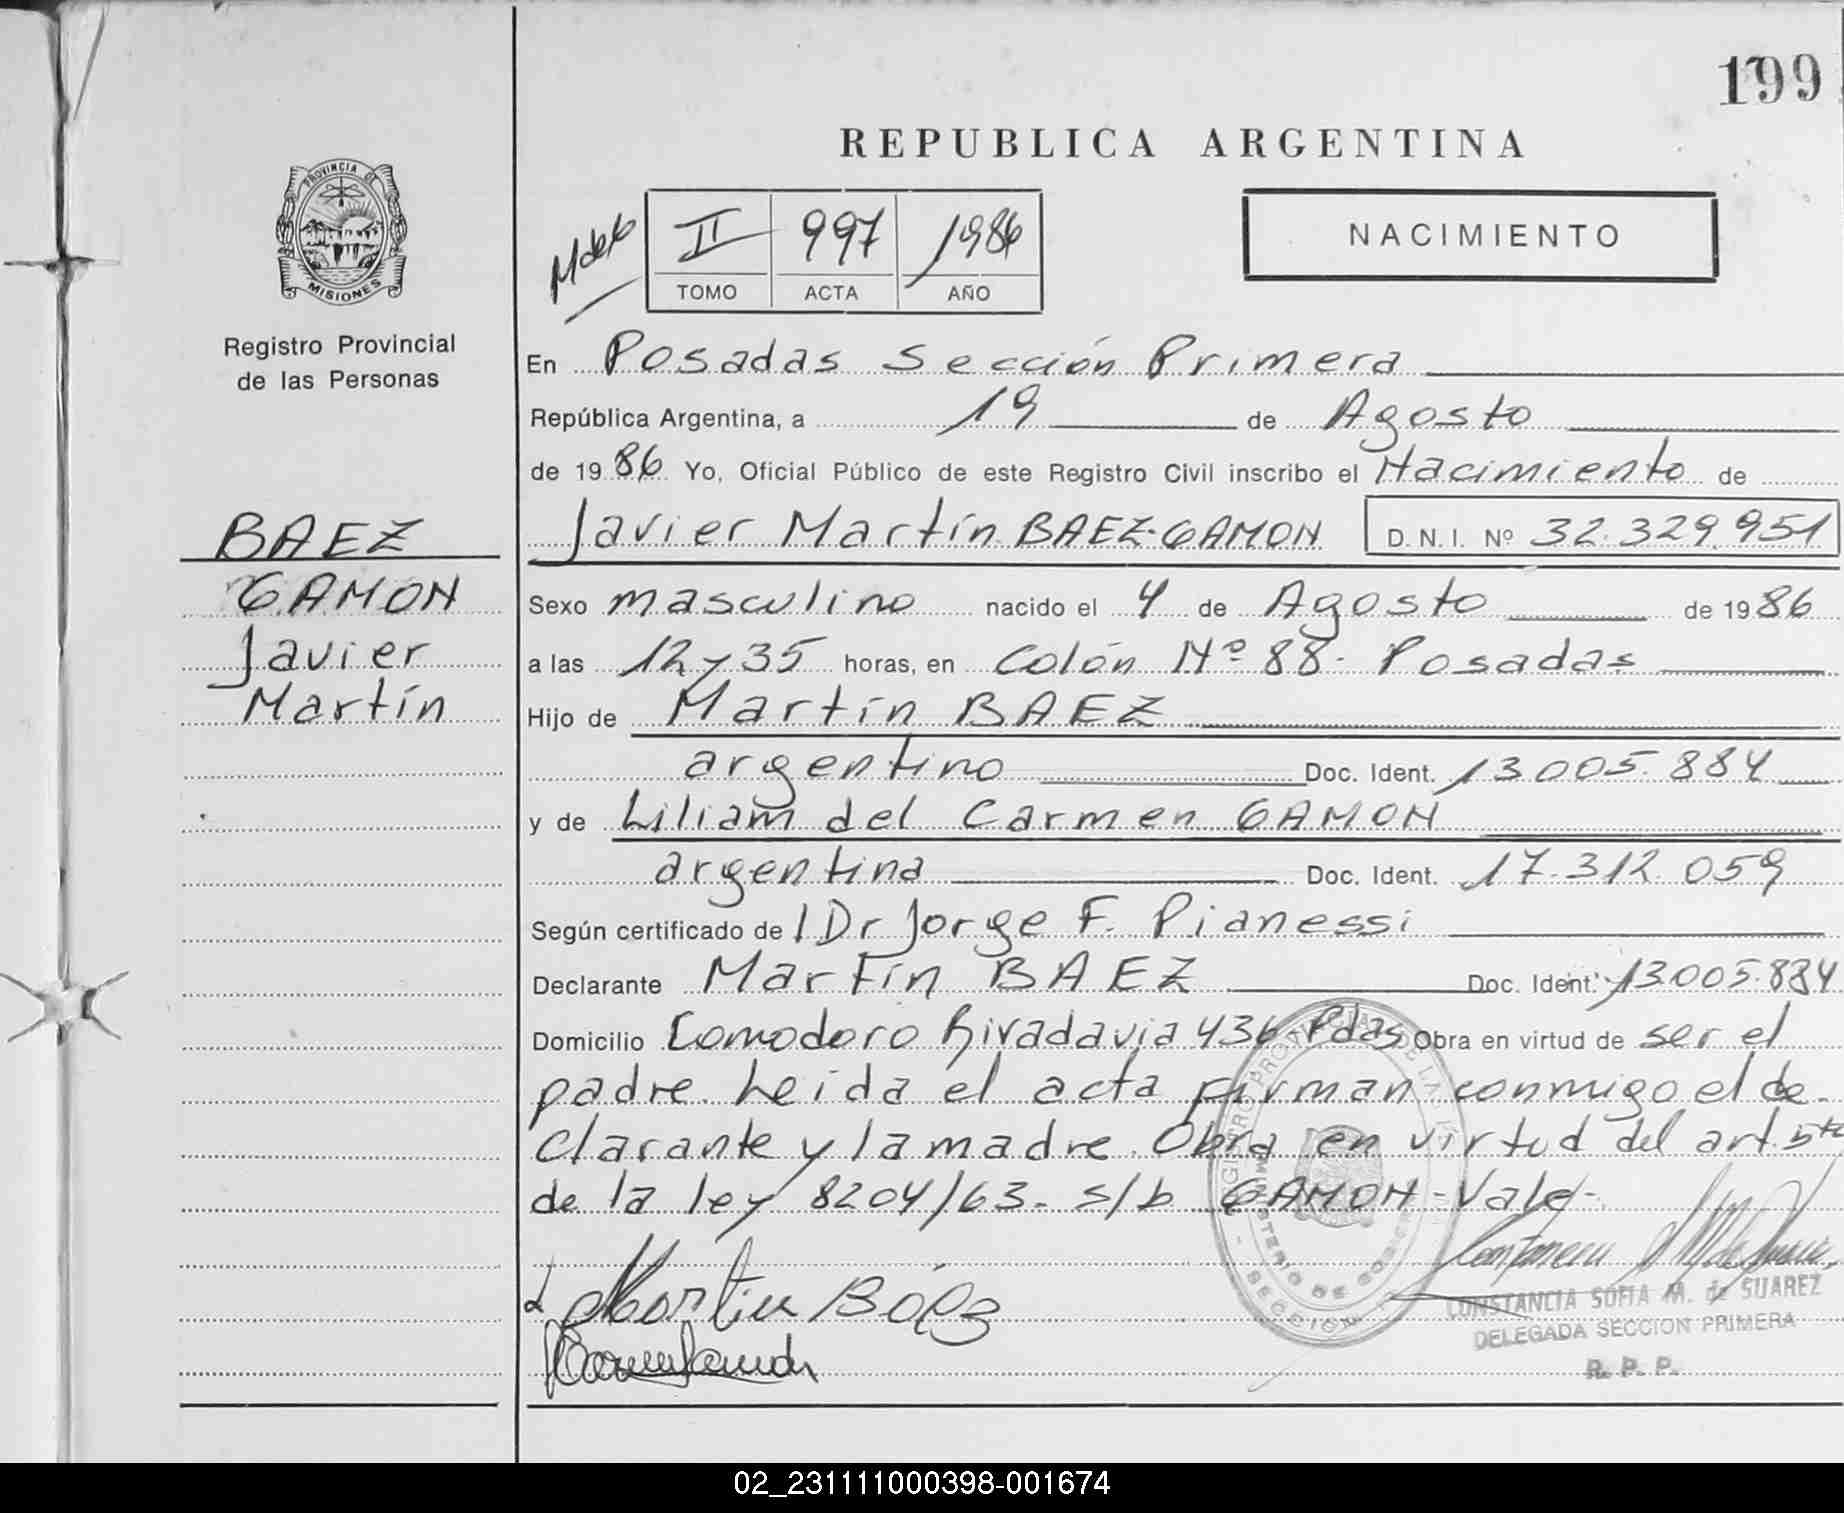 199
REPUBLICA ARGENTINA
PROVINCIA DE
MISIONES
Registro Provincial
de las Personas
II 997 1986
TOMO ACTA AÑO
NACIMIENTO
BAEZ
GAMON
Javier
Martín
En Posadas Sección Primera
República Argentina, a 19 de Agosto
de 1986 Yo, Oficial Público de este Registro Civil inscribo el Nacimiento de
Javier Martín BAEZ-GAMON D. N. I. Nº 32.329.951
Sexo masculino nacido el 4 de Agosto de 1986
a las 12 y 35 horas, en Colón Nº 88- Posadas
Hijo de Martín BAEZ
argentino Doc. Ident. 13.005.884
y de Liliam del Carmen GAMON
argentina Doc. Ident. 17.312.059
Según certificado de l Dr Jorge F. Pianessi
Declarante Martín BAEZ Doc. Ident. 13.005.884
Domicilio Comodoro Rivadavia 436 Pdas Obra en virtud de ser el
padre. Leida el acta firman conmigo el de-
clarante y la madre. Obra en virtud del art. 5to
de la ley 8204/63- s/b GAMON-Vale-
Martin Báez
CONSTANCIA SOFIA M. de SUAREZ
DELEGADA SECCION PRIMERA
R. P. P.
02_231111000398-001674